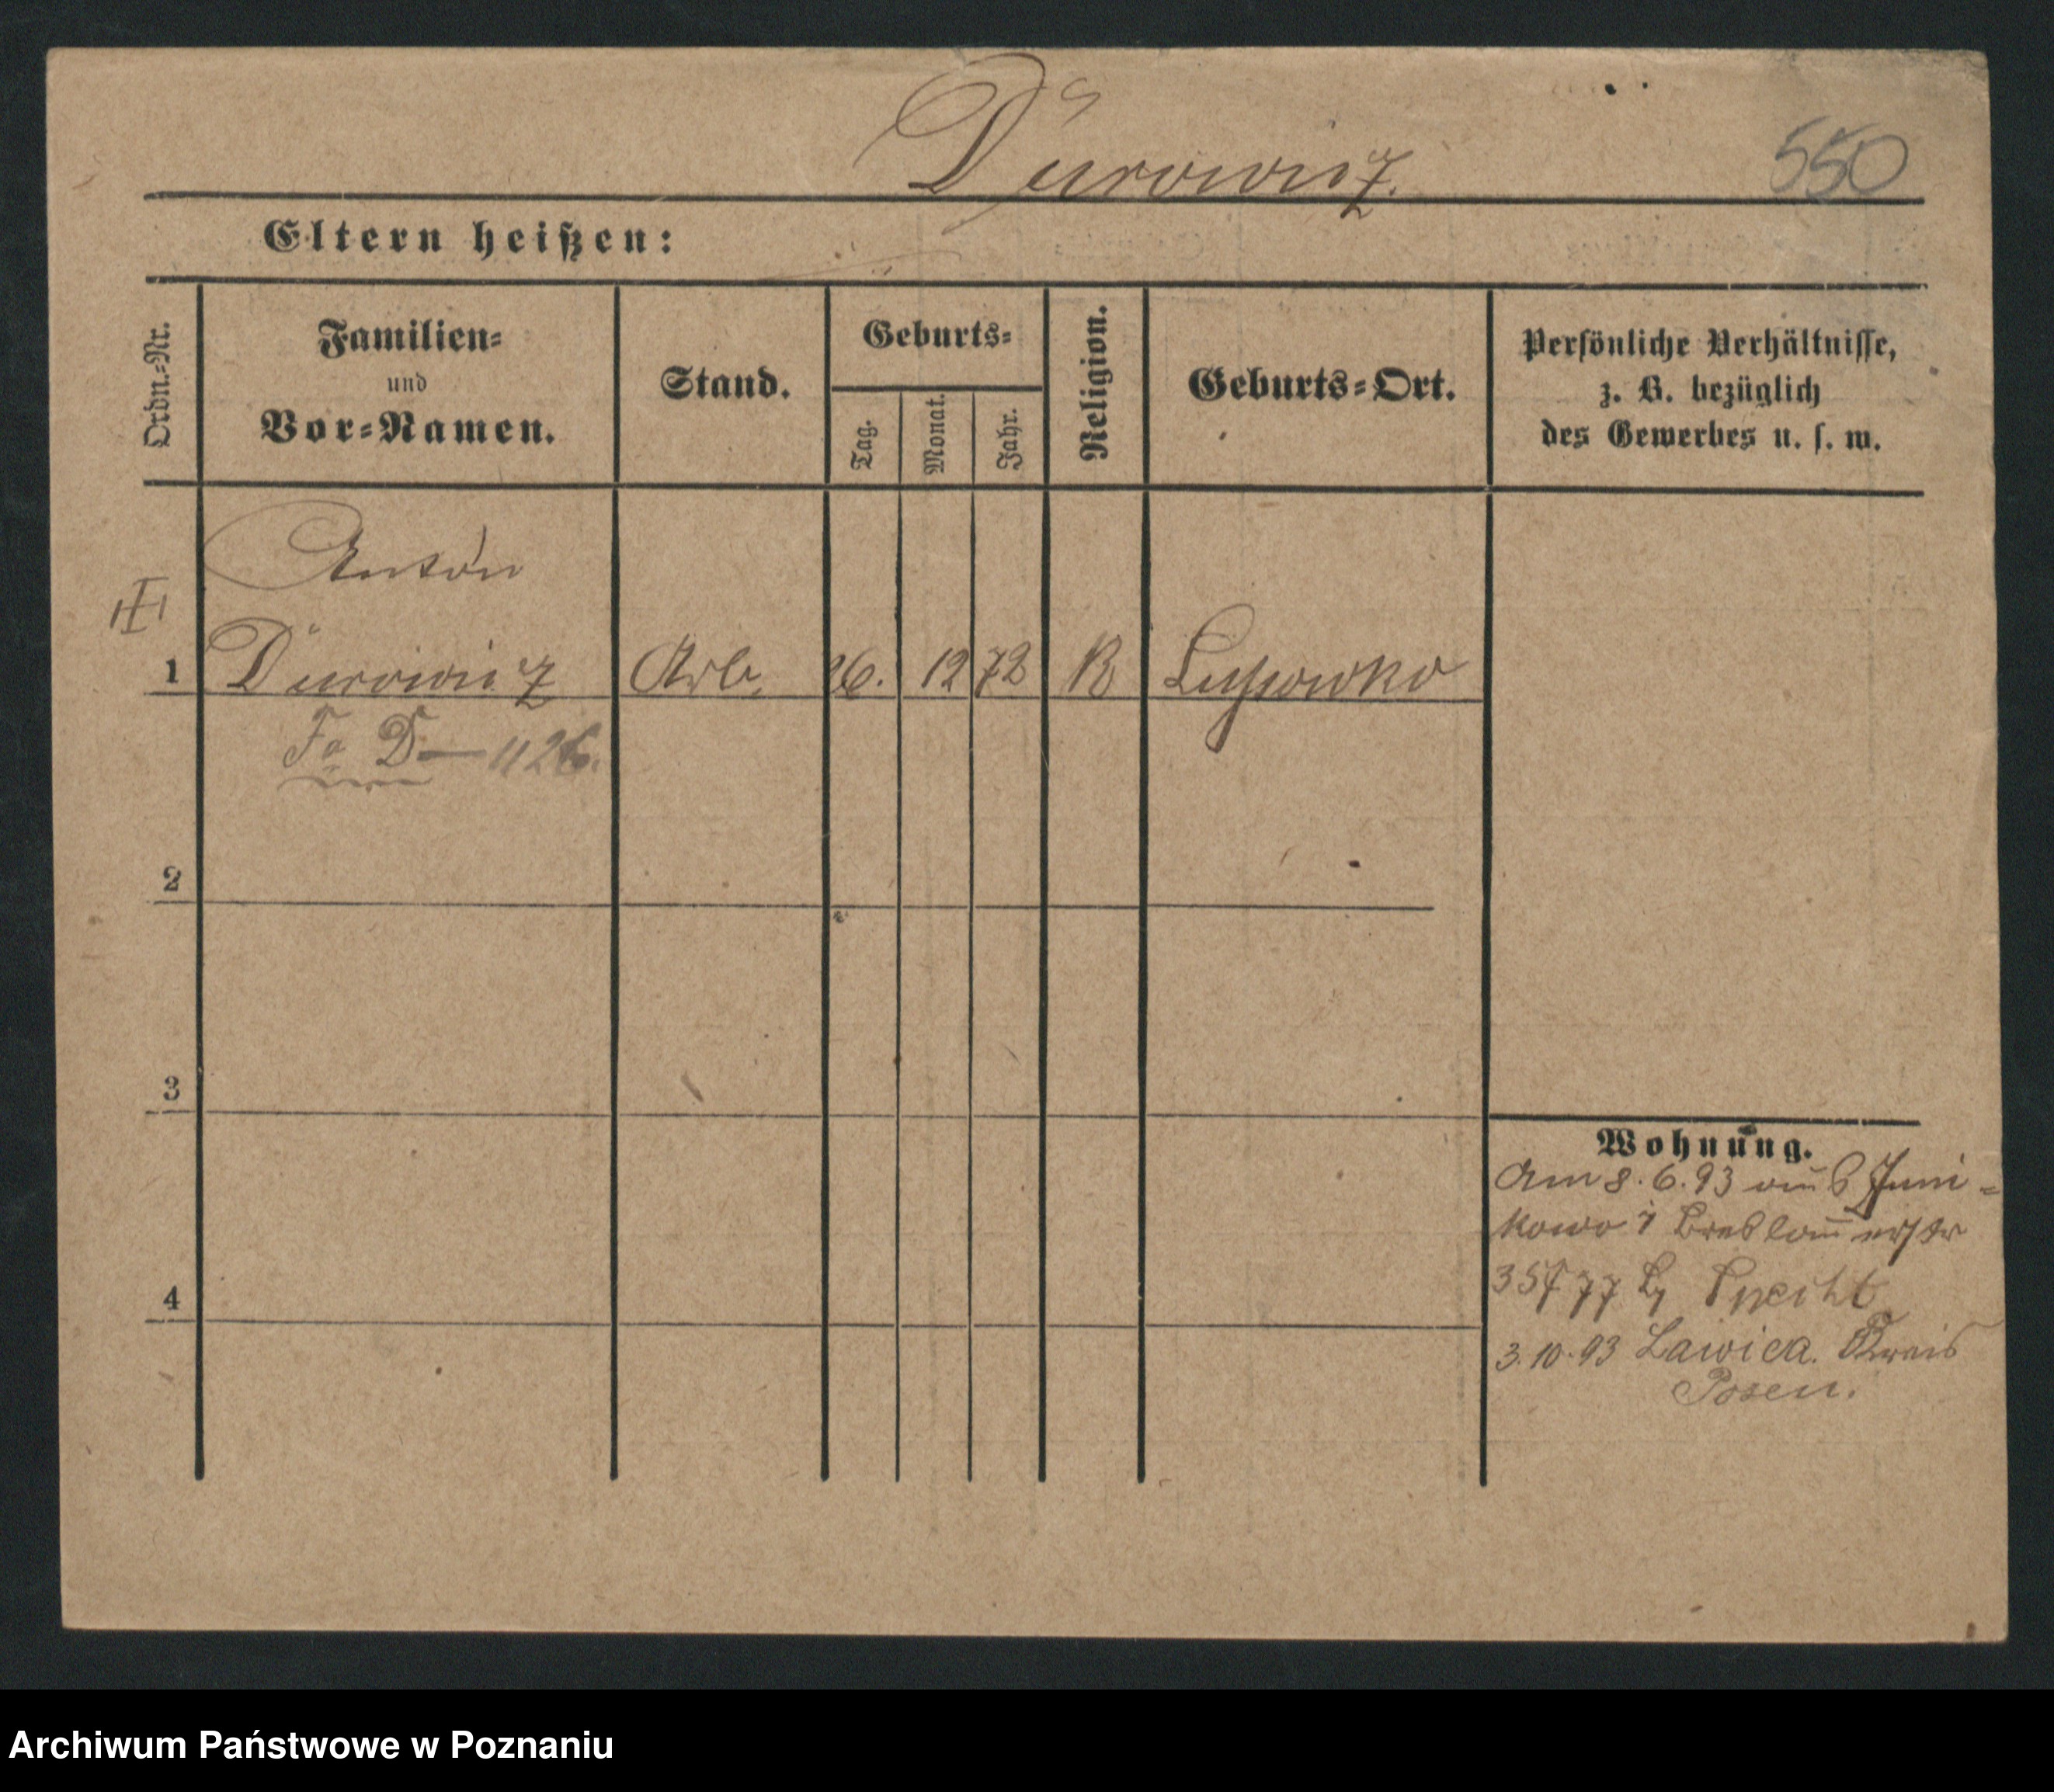 Durowicz.
550
Eltern heißen:
Ordn.-Nr.
Familien-
und
Vor-Namen.
Stand.
Geburts-
Tag.
Monat.
Jahr.
Religion.
Geburts-Ort.
Persönliche Verhältnisse,
z. B. bezüglich
des Gewerbes u. s. w.
Anton
1 Durowicz Arb. 26. 12 72 K Lussowko
D— 1126.
2
3
4
Wohnung.
Am 8. 6. 93 aus Juni-
kowo Breslauerstr
35 Specht
3. 10. 93 Lawica. Kreis
Posen.
Archiwum Państwowe w Poznaniu